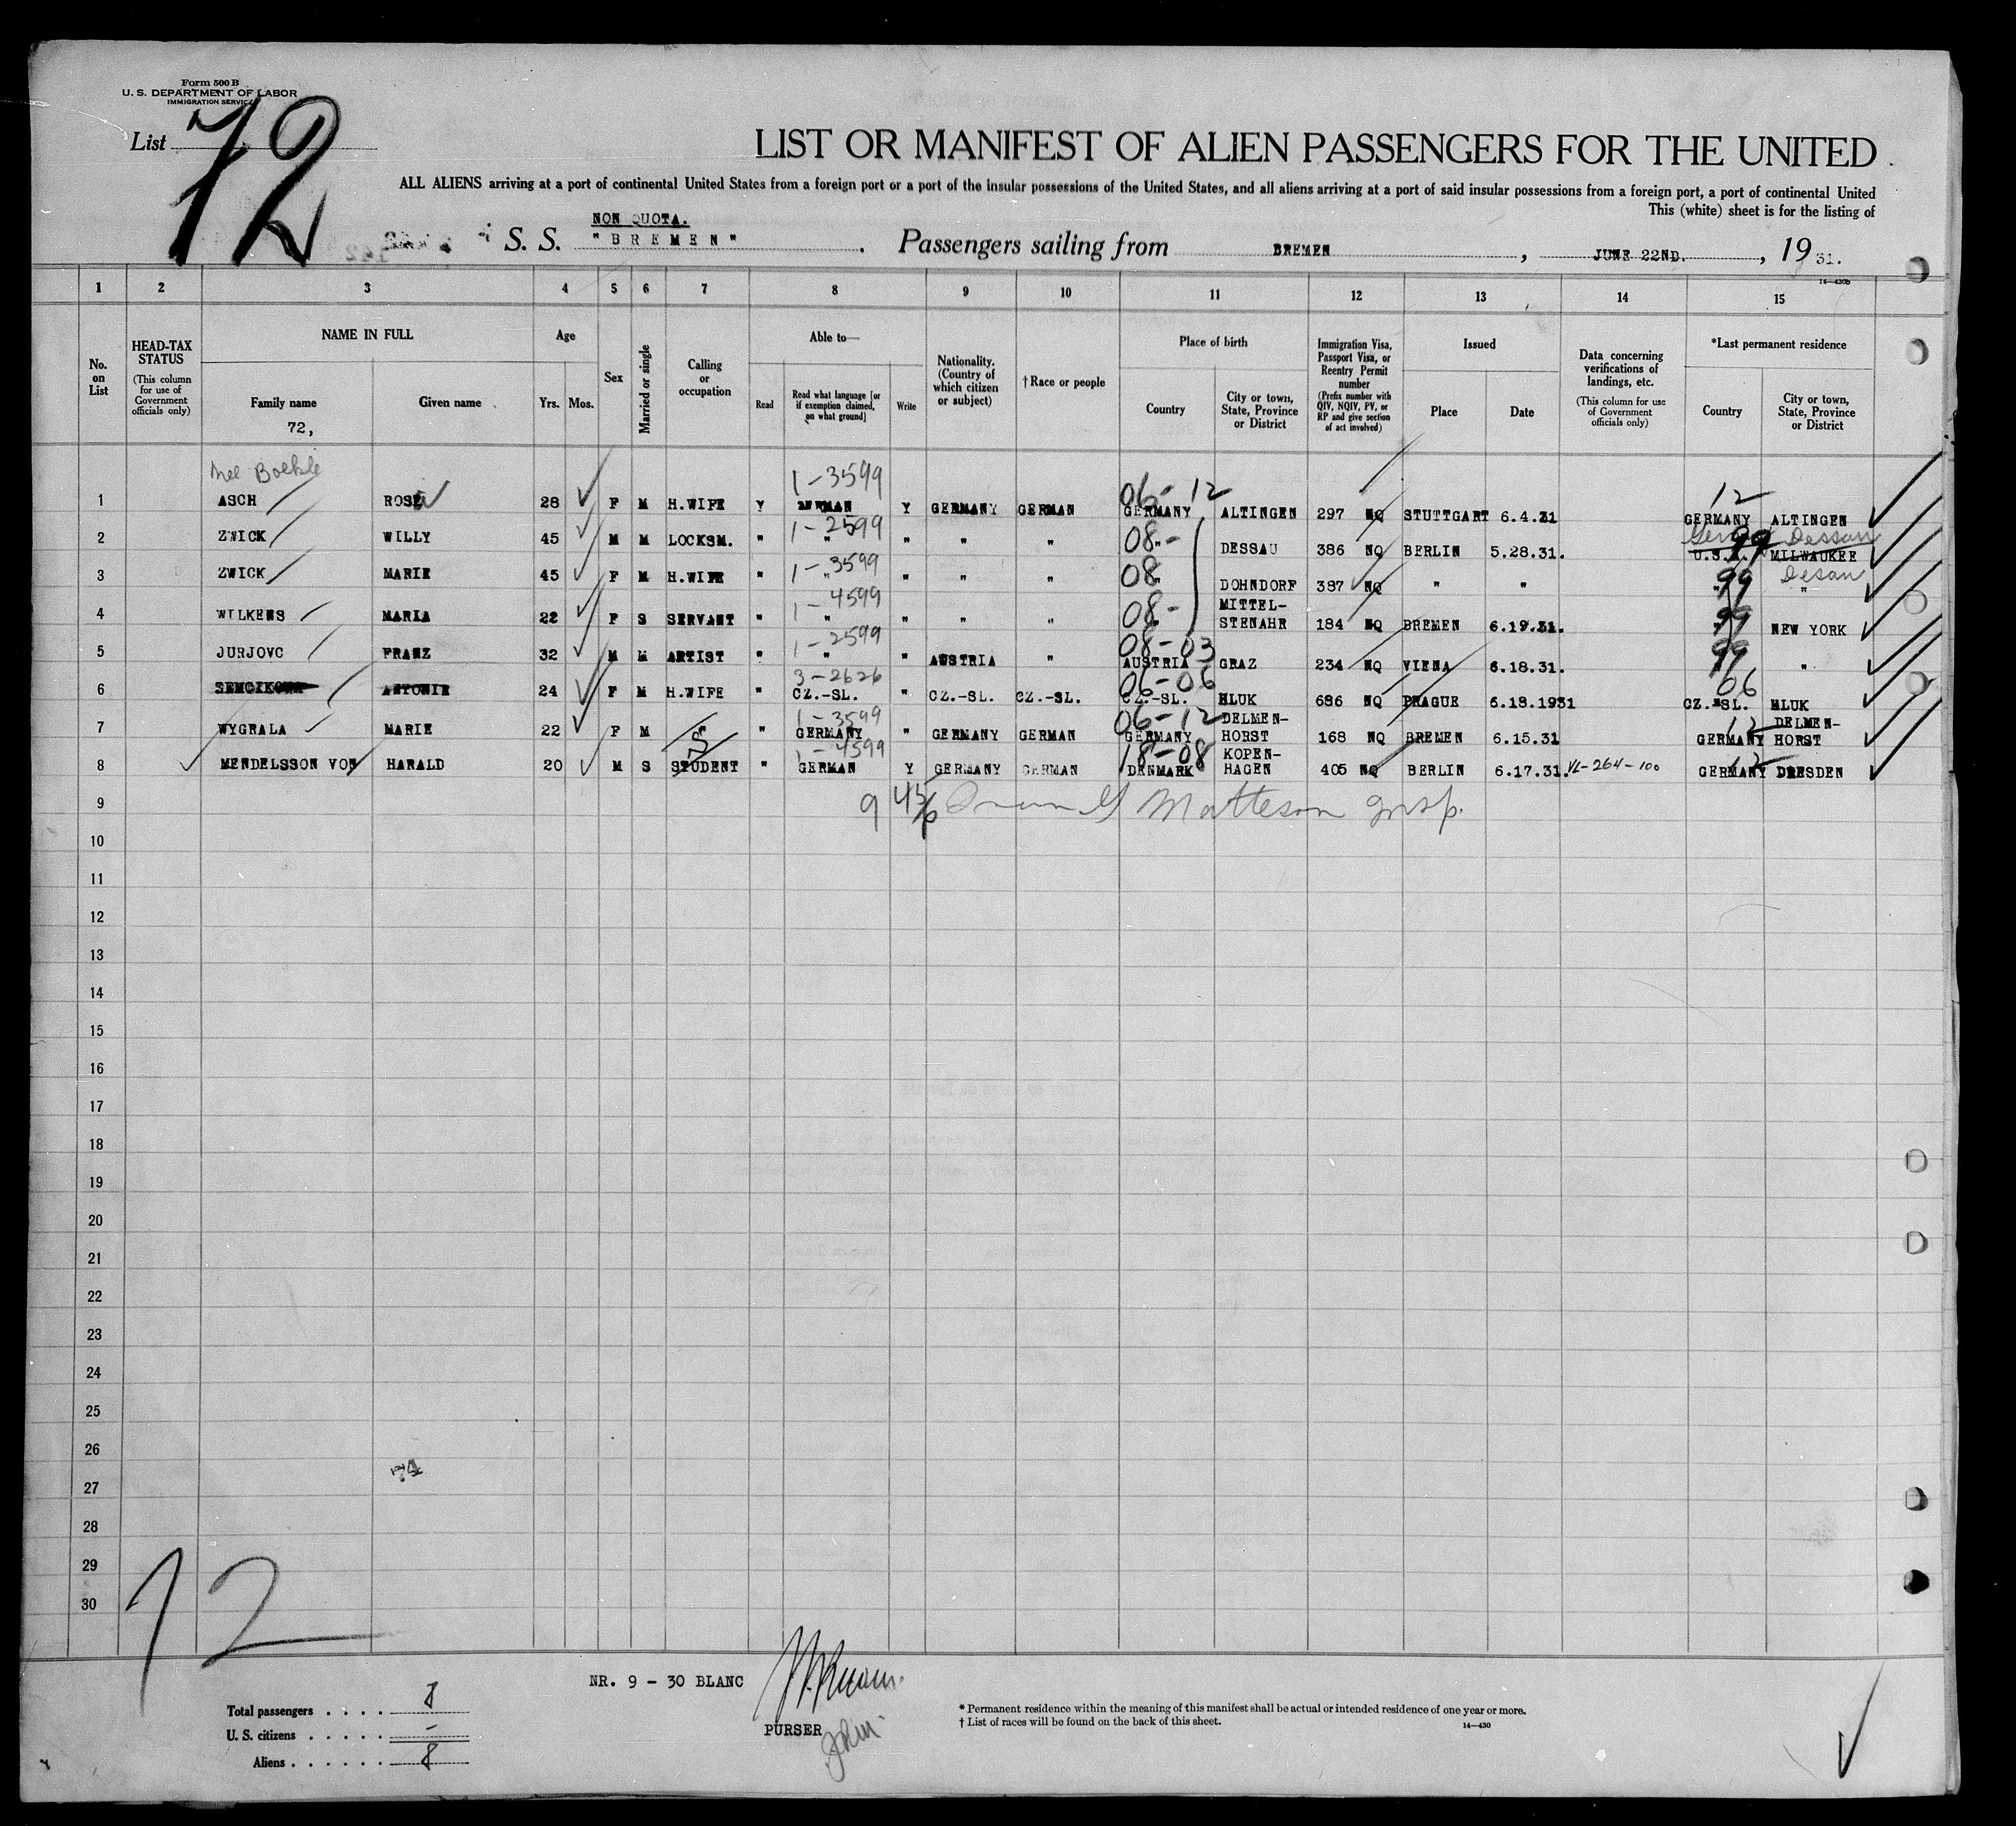 Form 500 B
U. S. DEPARTMENT OF LABOR
IMMIGRATION SERVICE
List 72
LIST OR MANIFEST OF ALIEN PASSENGERS FOR THE UNITED
ALL ALIENS arriving at a port of continental United States from a foreign port or a port of the insular possessions of the United States, and all aliens arriving at a port of said insular possessions from a foreign port, a port of continental United
This (white) sheet is for the listing of
NON QUOTA.
S. S. "BREMEN". Passengers sailing from BREMEN, JUNE 22ND., 19 31.
14—430b
1 2 3 4 5 6 7 8 9 10 11 12 13 14 15
No. on List
HEAD-TAX STATUS (This column for use of Government officials only)
NAME IN FULL
Family name
72,
Given name
Age
Yrs. Mos.
Sex
Married or single
Calling or occupation
Able to—
Read
Read what language [or if exemption claimed, on what ground]
Write
Nationality. (Country of which citizen or subject)
†Race or people
Place of birth
Country
City or town, State, Province or District
Immigration Visa, Passport Visa, or Reentry Permit number (Prefix number with QIV, NQIV, PV, or RP and give section of act involved)
Issued
Place
Date
Data concerning verifications of landings, etc. (This column for use of Government officials only)
*Last permanent residence
Country
City or town, State, Province or District
nee 1-3599 06-12 12
1 ASCH ROSE 28 F M H.WIFE Y GERMAN Y GERMANY GERMAN GERMANY ALTINGEN 297 NQ STUTTGART 6.4.31 GERMANY ALTINGEN
1-2599 08- Ger 99 Dessau
2 ZWICK WILLY 45 M M LOCKSM. " " " " " " DESSAU 386 NQ BERLIN 5.28.31. U.S.A. MILWAUKEE
1-3599 08 99 Desau
3 ZWICK MARIE 45 F M H.WIFE " " " " " " DOHNDORF 387 NQ " " " "
1-4599 08- 99
4 WILKENS MARIA 22 F S SERVANT " " " " " " MITTEL-STENAHR 184 NQ BREMEN 6.19.31. " NEW YORK
1-2599 08-03 99
5 JURJOVC FRANZ 32 M M ARTIST " " " AUSTRIA " AUSTRIA GRAZ 234 NQ VIENA 6.18.31. " "
3-2626 06-06 06
6 ANTONIE 24 F M H.WIFE " CZ.-SL. " CZ.-SL. CZ.-SL. CZ.-SL. HLUK 686 NQ PRAGUE 6.18.1931 CZ.-SL. HLUK
1-3599 06-12 12
7 WYGRALA MARIE 22 F M " " GERMANY " GERMANY GERMAN GERMANY DELMEN-HORST 168 NQ BREMEN 6.15.31 GERMANY DELMEN-HORST
1-4599 18-08 12
8 MENDELSSON VON HARALD 20 M S STUDENT " GERMAN Y GERMANY GERMAN DENMARK KOPEN-HAGEN 405 NQ BERLIN 6.17.31. VL-264-100 GERMANY DRESDEN
9 9 45/6 Matteson insp.
10
11
12
13
14
15
16
17
18
19
20
21
22
23
24
25
26
27
28
29
30
72
NR. 9 - 30 BLANC
PURSER
Total passengers . . . . 8
U. S. citizens . . . . . -
Aliens . . . . . . 8
* Permanent residence within the meaning of this manifest shall be actual or intended residence of one year or more.
† List of races will be found on the back of this sheet.
14—430